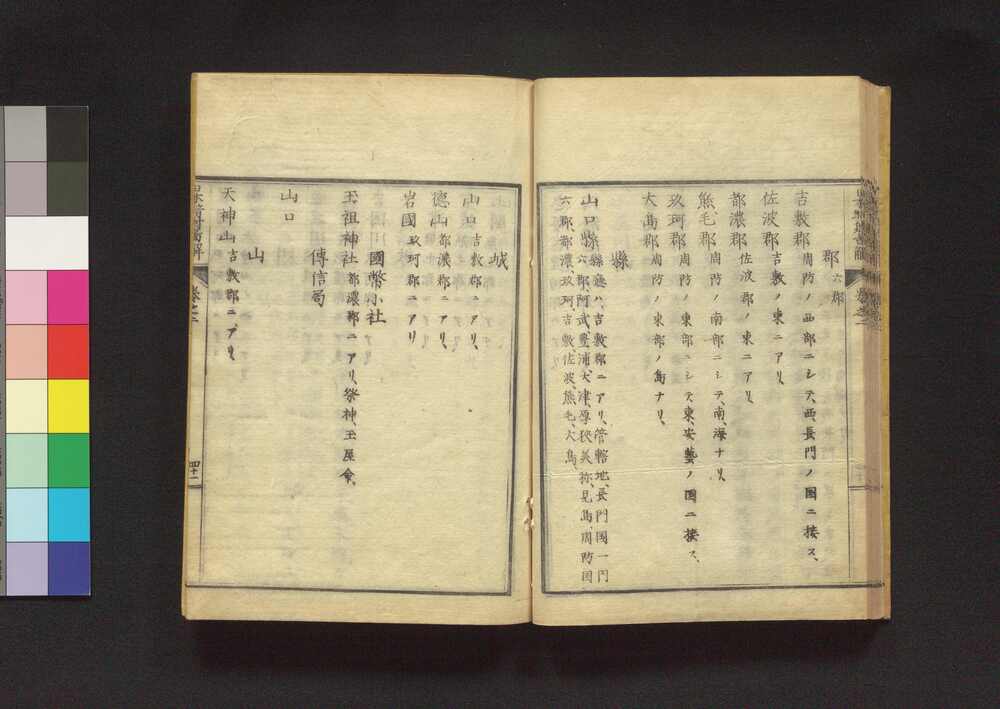 郡 六郡
吉敷郡 周防ノ西部ニシテ、西、長門ノ國ニ接ス、
佐波郡 吉敷ノ東ニアリ
都濃郡 佐波郡ノ東ニアリ
熊毛郡 周防ノ南部ニシテ、南、海ナリ
玖珂郡 周防ノ東部ニシテ、東、安藝ノ國ニ接ス、
大島郡 周防ノ東部ノ島ナリ、
縣
山口縣 縣廳ハ、吉敷郡ニアリ、管轄地、長門國一門
六郡、阿武、豊浦、大津、厚狹、美祢、見島、周防国
六郡、都濃、玖珂、吉敷、佐波、熊毛、大島、
城
山口 吉敷郡ニアリ、
德山 都濃郡ニアリ、
岩國 玖珂郡ニアリ
國幣小社
玉祖神社 都濃郡ニアリ、祭神、玉屋命、
傳信局
山口
山
天神山 吉敷郡ニアリ、
卷之二
四十一